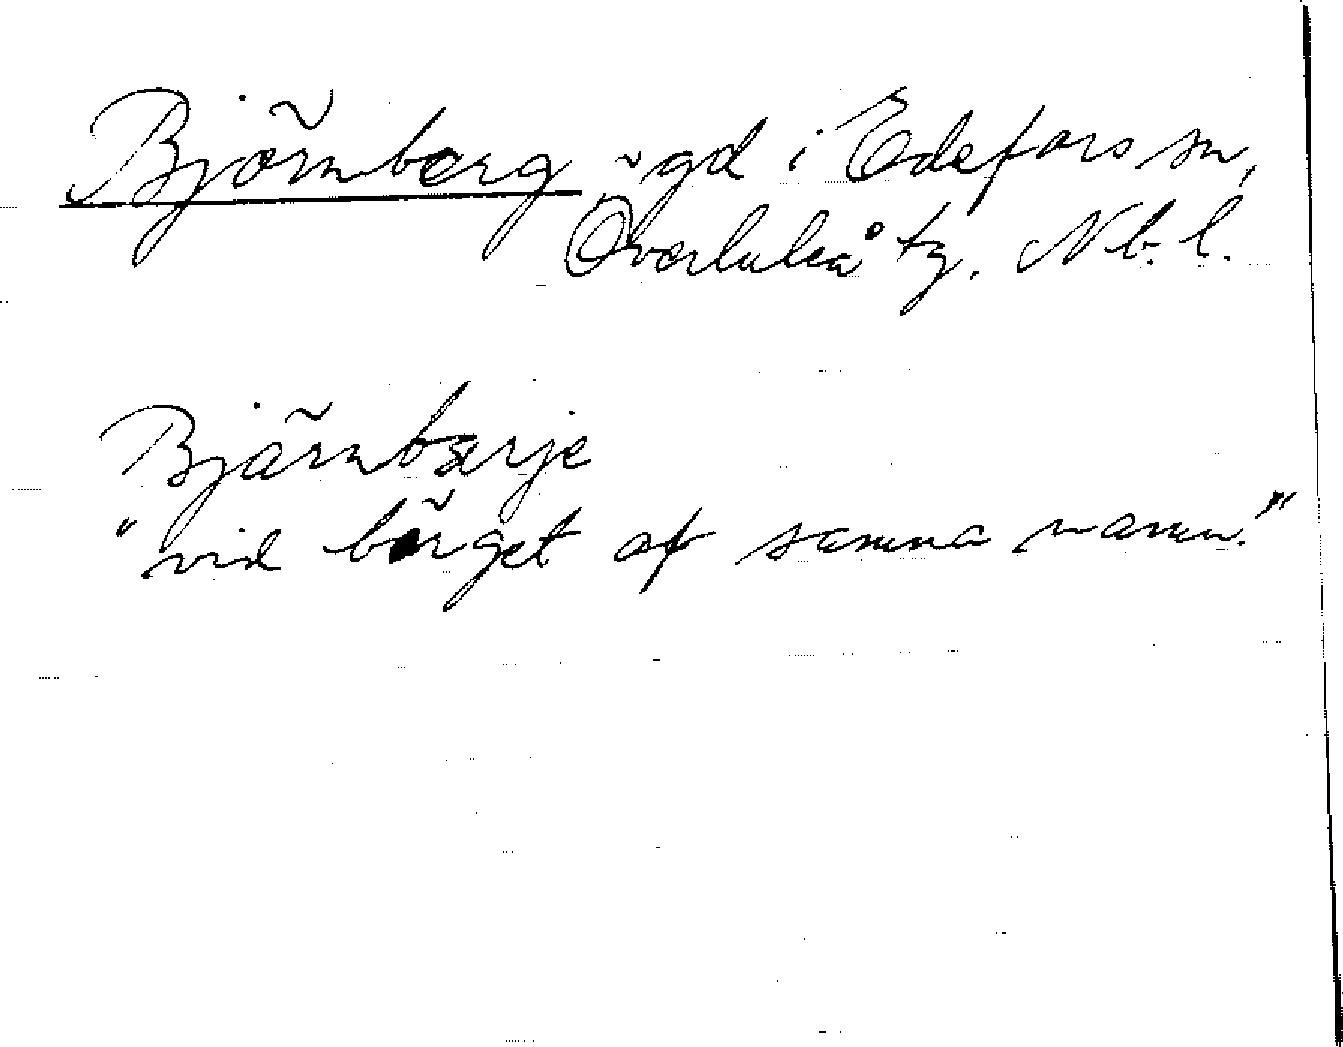 Björnberg gd i Edefors sn,
Överluleå tg. Nb. l.
Bjärnbærje
"vid bärget af samma namn."